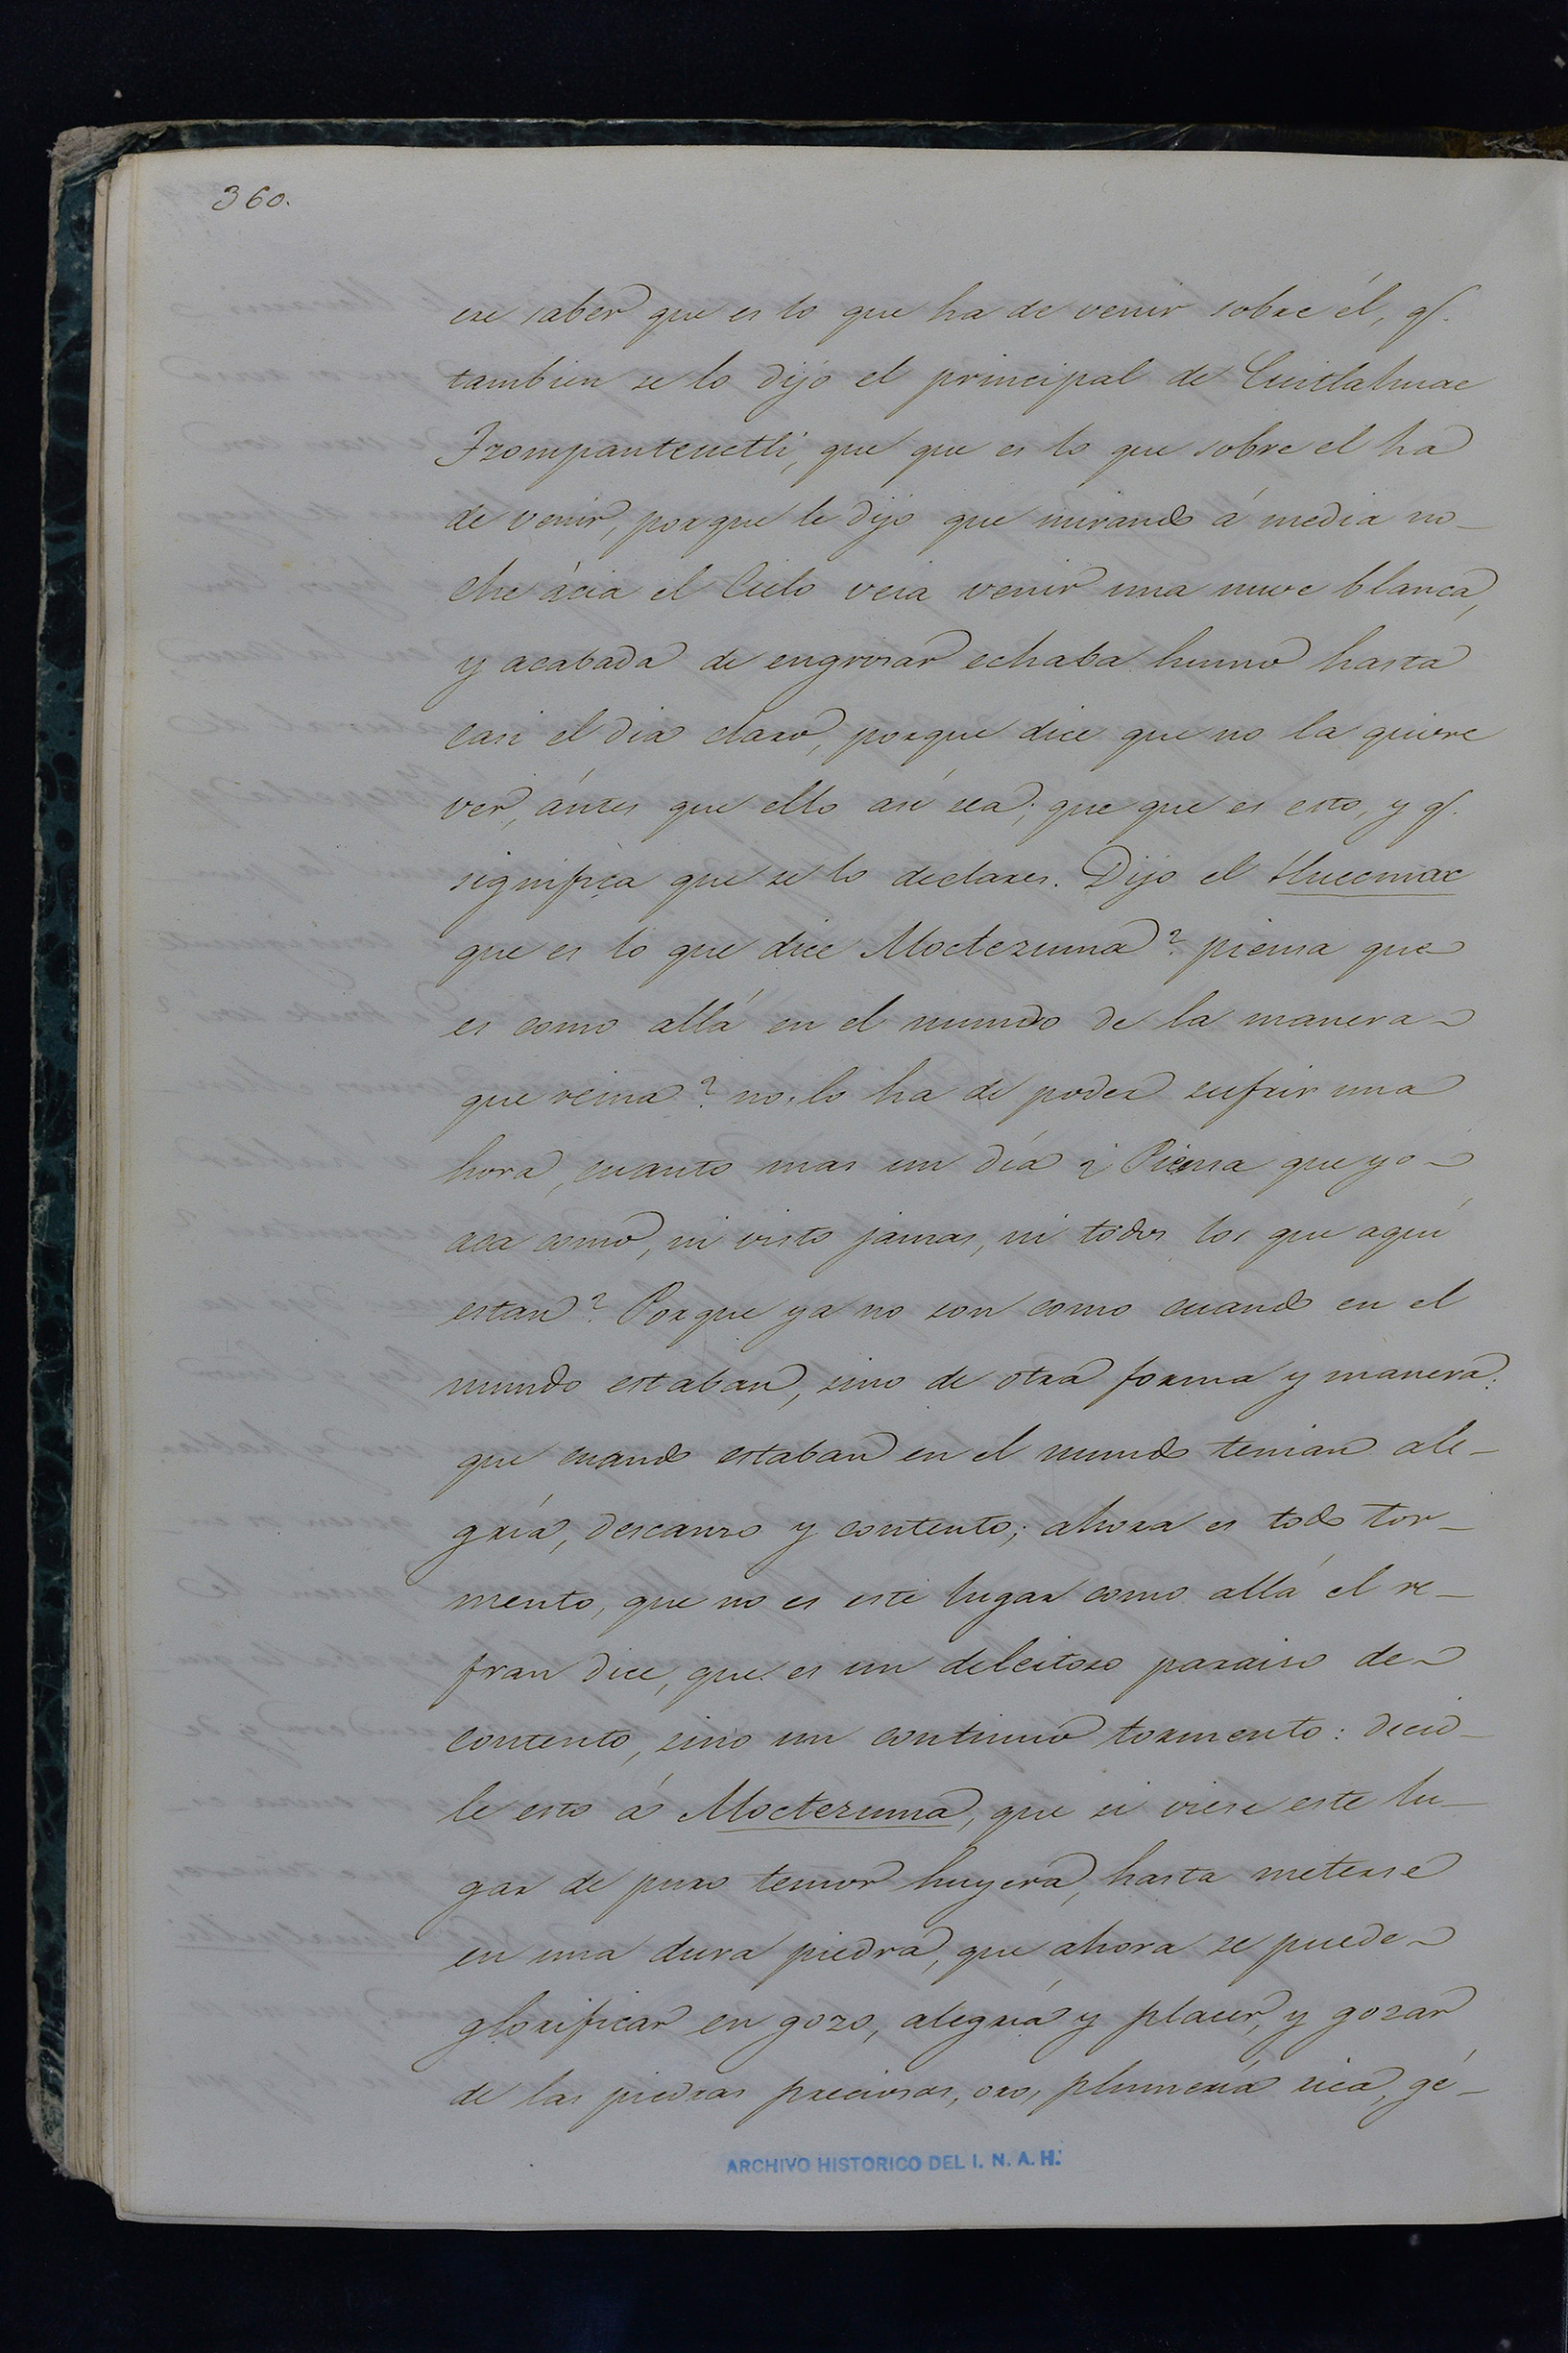 360.
ere saber que es lo que ha de venir sobre él, q.
tambien se lo dijo el principal de Cuitlahuac
Tzompanteuctli, que que es lo que sobre el ha
de venir, porque le dijo que mirando á media no-
che ácia el Cielo veia venir una nuve blanca,
y acabada de engrosar echaba humo hasta
casi el dia claro, porque dice que no la quiere
ver, ántes que ello asi sea; que que es esto, y q.
significa que se lo declares. Dijo el Huecmac
que es lo que dice Moctezuma? piensa que
es como allá en el mundo de la manera
que reina? no, lo ha de poder sufrir una
hora, cuanto mas un día ¿ Piensa que yo
aca como, ni visto jamas, ni todos los que aquí
estan? Porque ya no son como cuando en el
mundo estaban, sino de otra forma y manera:
que cuando estaban en el mundo tenian ale-
gría, descanso y contento; ahora es todo tor-
mento, que no es este lugar como allá el re-
fran dice, que es un deleitoso paraiso de
contento, sino un continuo tormento: decid-
le esto á Moctezuma, que si viese este lu-
gar de puro temor huyera, hasta meterse
en una dura piedra, que ahora se puede
glorificar en gozo, alegría y placer, y gozar
de las piedras preciosas, oro, plumería rica, gé-
ARCHIVO HISTORICO DEL I. N. A. H.